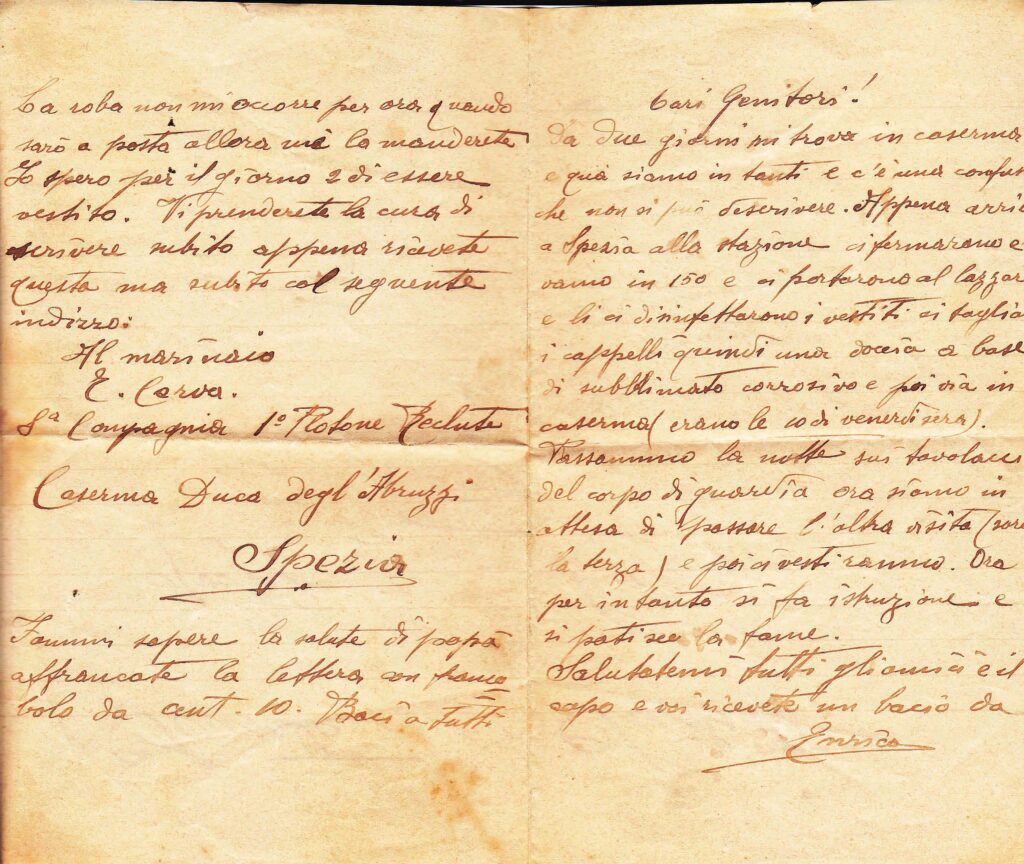 Cari Genitori!
Da due giorni mi trova in caserma
e quà siamo in tanti e c'è una confus
che non si può descrivere. Appena arri
a Spezia alla stazione ci fermarono e
vamo in 150 e ci portarono al lazzar
e li ci disinfettarono i vestiti ci taglia
i cappelli quindi una doccia a base
di subblimato corrosivo e poi via in
caserma (erano le 10 di venerdì sera).
Passammo la notte sui tavolacci
del corpo di guardia ora siamo in
attesa di passare l'altra visita (sare
la terza) e poi ci vestiranno. Ora
per intanto si fa istruzione e
si patisce la fame.
Salutatemi tutti gli amici e il
capo e voi ricevete un bacio da
Enrico
La roba non mi occorre per ora quando
sarò a posta allora me la manderete
Io spero per il giorno 2 di essere
vestito. Vi prenderete la cura di
scrivere subito appena ricevete
questa ma subito col seguente
indizzo:
Al marinaio
E. Cerva.
8ª Compagnia 1º Plotone Reclute
Caserma Duca degl'Abruzzi
Spezia
Fammi sapere la salute di papà
affrancate la lettera con franco
bolo da cent. 10. Baci a tutti